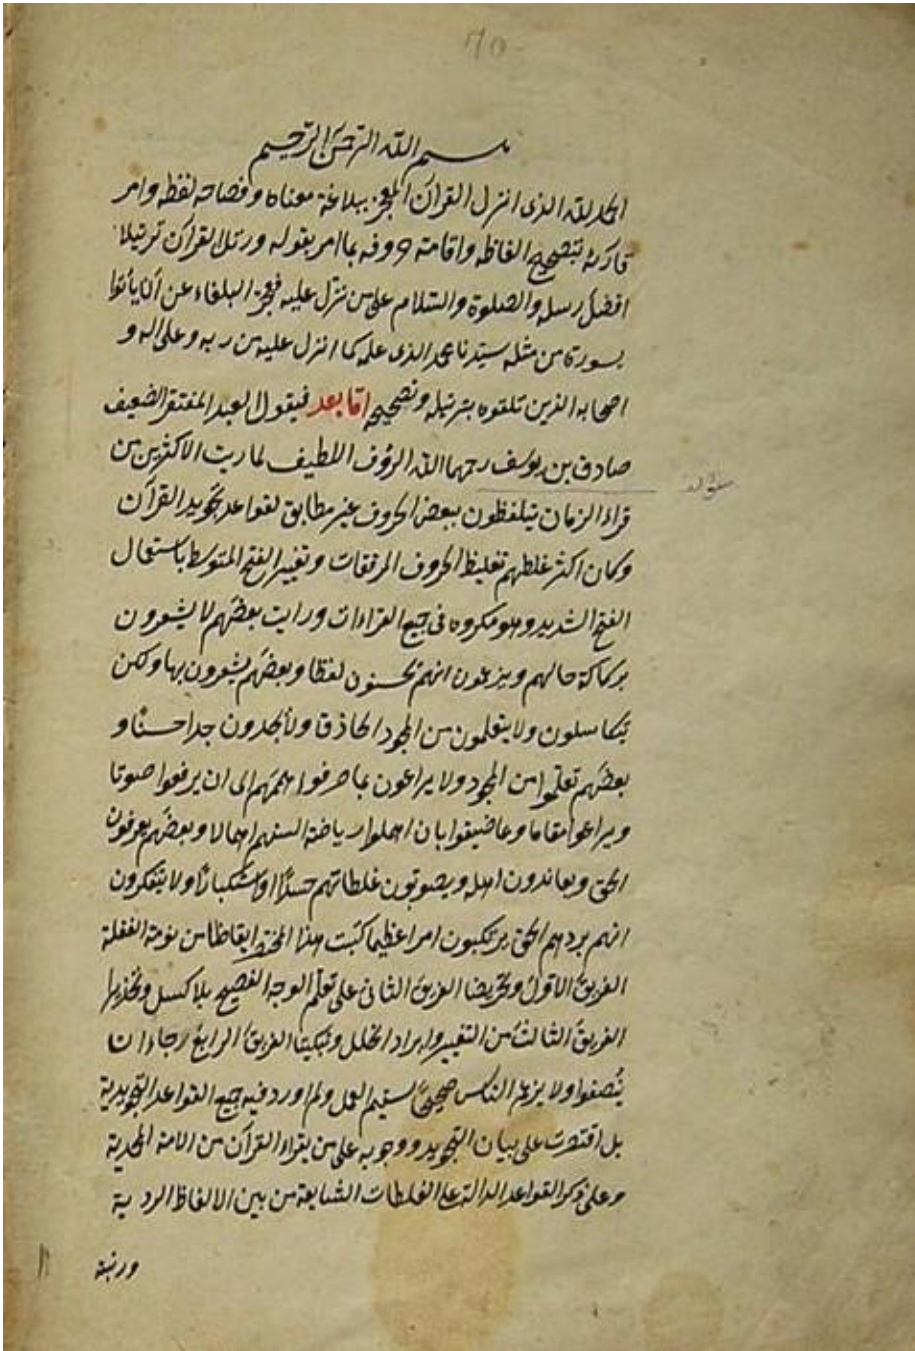 ٦٥
بسم الله الرحمن الرحيم
الحمد لله الذى انزل القرآن المعجز ببلاغة معناه وفصاحة لفظه وامر
قارئه بتصحيح الفاظه واقامة حروفه بما امر بقوله ورتل القرآن ترتيلا
افضل رسله والصلوة والسلام على من نزل عليه فعجز البلغاء عن ان يأتوا
بسورة من مثله سيدنا محمد الذى علمه كما انزل عليه من ربه وعلى اله و
اصحابه الذين تلقوه بترتيله وتصحيحه اما بعد فيقول العبد المفتقر الضعيف
صادق بن يوسف رحمهما الله الرؤف اللطيف لما رايت الاكثرين من
قراء الزمان يتلفظون ببعض الحروف غير مطابق لقواعد تجويد القرآن
وكان اكثر غلطهم تغليظ الحروف المرققات وتغيير الفتح المتوسط باستعمال
الفتح الشديد وهو مكروه فى جميع القراءات ورايت بعضهم لا يشعرون
بركاكة حالهم ويزعمون انهم يحسنون لفظا وبعضهم يشعرون بها ولكن
يتكاسلون ولا يتعلمون من المجود الحاذق ولا يجدون جدا حسنا و
بعضهم تعلموا من المجود ولا يراعون بل صرفوا هممهم الى ان يرفعوا صوتا
ويراعوا مقاما وضيعوا بان اهملوا رياضة السنهم اهمالا وبعضهم يعرفون
الحق ويعاندون اهله ويصوبون غلطاتهم حسدا او استكبارا ولا يتفكرون
انهم بردهم الحق يرتكبون امرا عظيما كتبت هذا المختصر ايقاظا من نومة الغفلة
الفريق الاول وتحريضا الفريق الثانى على تعلم الوجه الفصيح بلا كسل وتحذيرا
الفريق الثالث من التغيير وايراد الخلل وتبكيتا الفريق الرابع رجاء ان
ينصفوا ولا يزعم الناس صحيحا سقيم العمل ولم اورد فيه جميع القواعد التجويدية
بل اقتصرت على بيان التجويد ووجوبه على من يقراء القرآن من الامة المحمدية
وعلى ذكر القواعد الدالة على الغلطات الشايعة من بين الالفاظ الردية
ورتبته